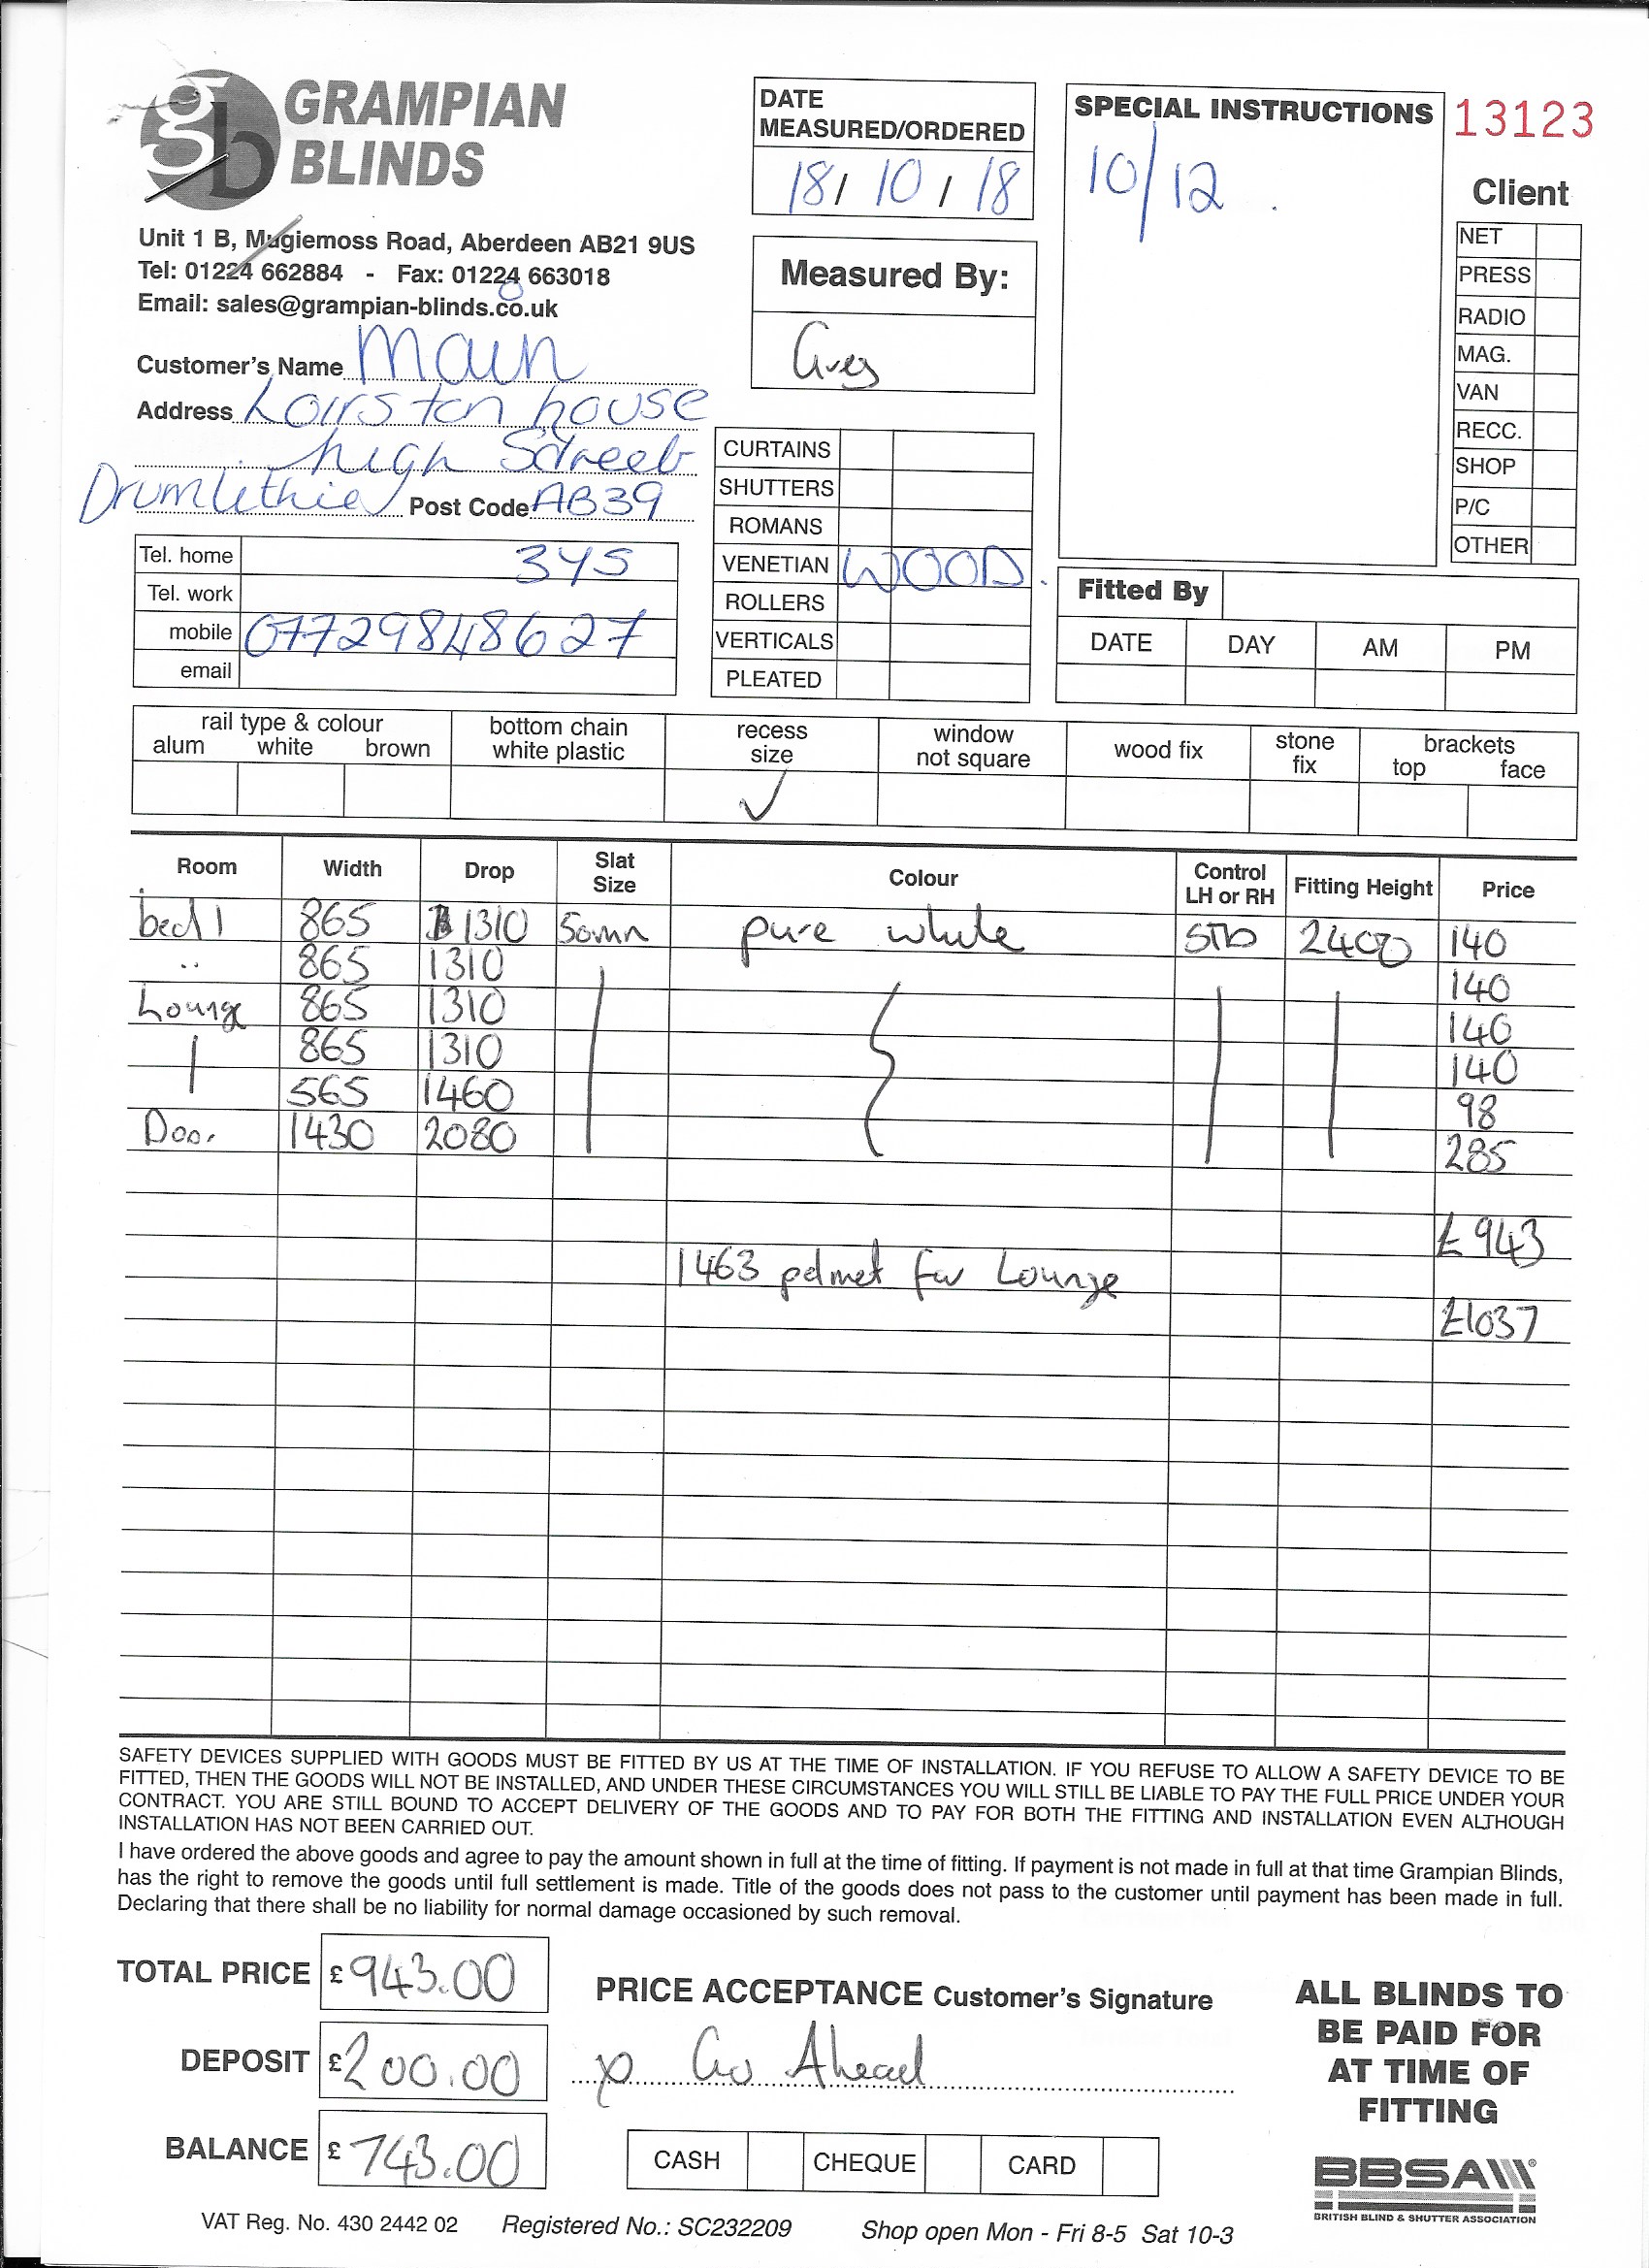 GRAMPIAN
BLINDS
Unit 1 B, Mugiemoss Road, Aberdeen AB21 9US
Tel: 01224 662884 - Fax: 01224 663018
Email: sales@grampian-blinds.co.uk
DATE
MEASURED/ORDERED
18/ 10 / 18
Measured By:
Greg
SPECIAL INSTRUCTIONS
10/12.
13123
Client
NET
PRESS
RADIO
MAG.
VAN
RECC.
SHOP
P/C
OTHER
Customer's Name Main
Address Lairston house
high Street
Drumlithie Post Code AB39
Tel. home 3YS
Tel. work
mobile 07729848627
email
CURTAINS
SHUTTERS
ROMANS
VENETIAN WOOD.
ROLLERS
VERTICALS
PLEATED
Fitted By
DATE DAY AM PM
rail type & colour
alum white brown
bottom chain
white plastic
recess
size
✓
window
not square
wood fix
stone
fix
brackets
top face
Room Width Drop Slat Size Colour Control LH or RH Fitting Height Price
bed 1 865 1310 50mm pure white STD 2400 140
" 865 1310 140
Lounge 865 1310 140
865 1310 140
565 1460 98
Door 1430 2080 285
£943
1463 pelmet for Lounge
£1037
SAFETY DEVICES SUPPLIED WITH GOODS MUST BE FITTED BY US AT THE TIME OF INSTALLATION. IF YOU REFUSE TO ALLOW A SAFETY DEVICE TO BE
FITTED, THEN THE GOODS WILL NOT BE INSTALLED, AND UNDER THESE CIRCUMSTANCES YOU WILL STILL BE LIABLE TO PAY THE FULL PRICE UNDER YOUR
CONTRACT. YOU ARE STILL BOUND TO ACCEPT DELIVERY OF THE GOODS AND TO PAY FOR BOTH THE FITTING AND INSTALLATION EVEN ALTHOUGH
INSTALLATION HAS NOT BEEN CARRIED OUT.
I have ordered the above goods and agree to pay the amount shown in full at the time of fitting. If payment is not made in full at that time Grampian Blinds,
has the right to remove the goods until full settlement is made. Title of the goods does not pass to the customer until payment has been made in full.
Declaring that there shall be no liability for normal damage occasioned by such removal.
TOTAL PRICE £943.00
DEPOSIT £200.00
BALANCE £743.00
PRICE ACCEPTANCE Customer's Signature
x Go Ahead
CASH CHEQUE CARD
ALL BLINDS TO
BE PAID FOR
AT TIME OF
FITTING
BBSA
BRITISH BLIND & SHUTTER ASSOCIATION
VAT Reg. No. 430 2442 02 Registered No.: SC232209 Shop open Mon - Fri 8-5 Sat 10-3